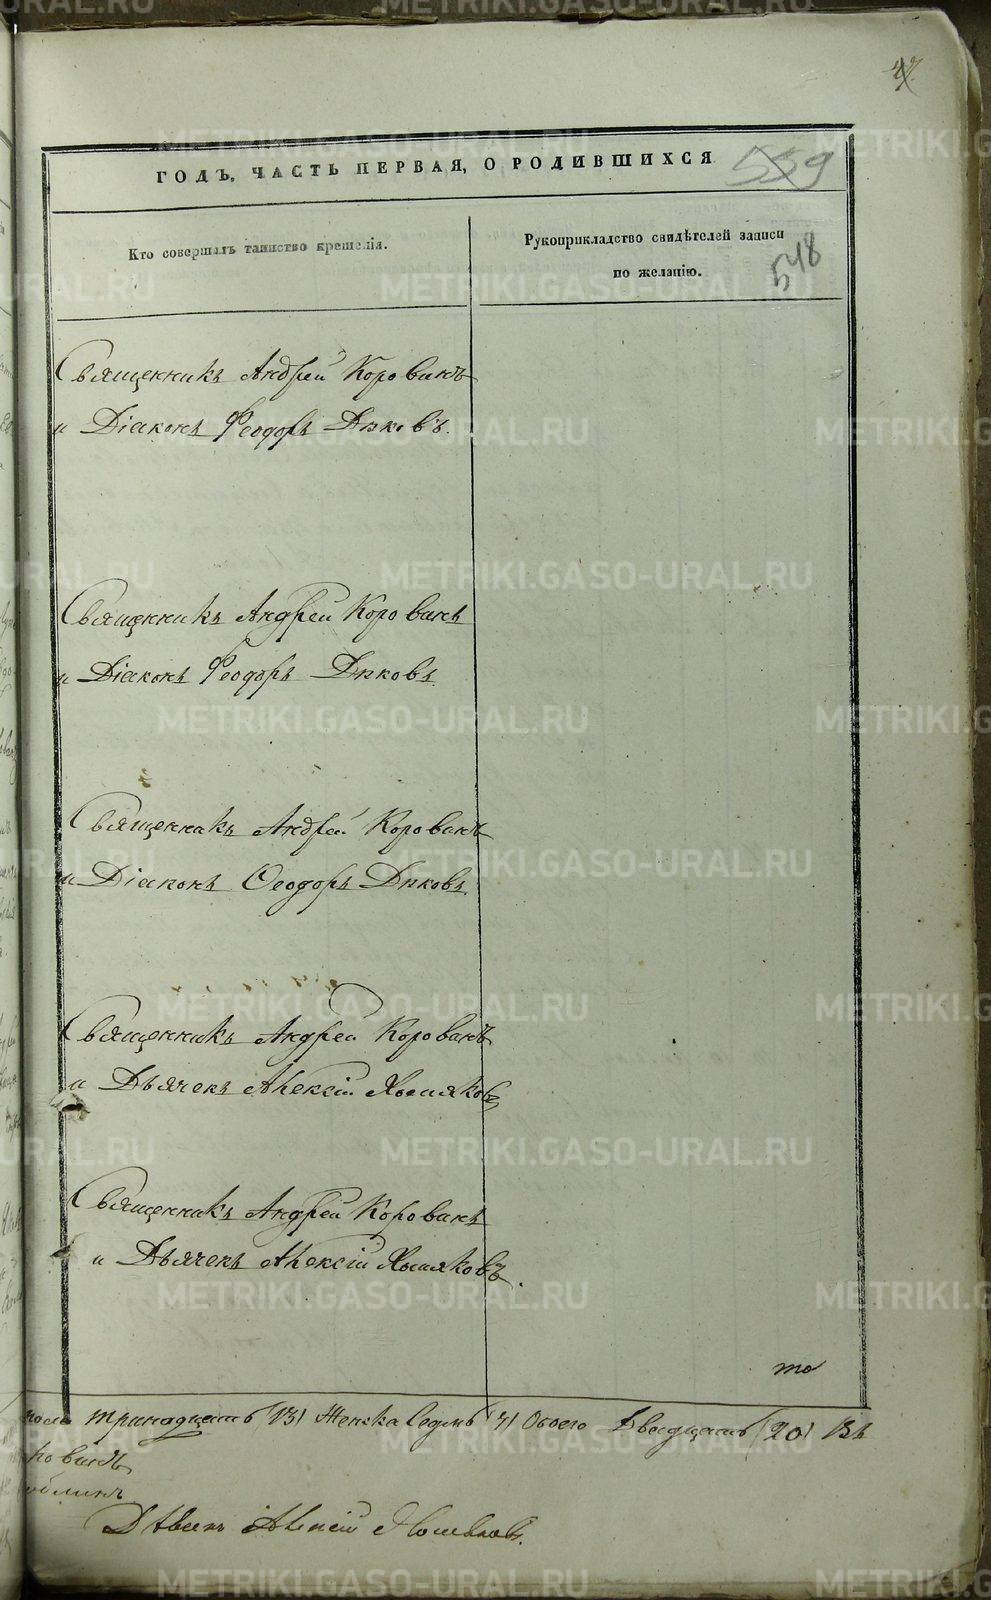 47.
ГОДЪ, ЧАСТЬ ПЕРВАЯ, О РОДИВШИХСЯ
559
Кто совершалъ таинство крещенія.
Рукоприкладство свидѣтелей записи
по желанію.
548
Священникъ Андрей Коровинъ
и Діаконъ Ѳеодоръ Диковъ.
Священникъ Андрей Коровинъ
и Діаконъ Ѳеодоръ Диковъ.
Священникъ Андрей Коровинъ
и Діаконъ Ѳеодоръ Диковъ.
Священникъ Андрей Коровинъ
и Дьячекъ Алексій
Священникъ Андрей Коровинъ
и Дьячекъ Алексій
то
пола тринадцать (13) Женска Седмь (7) Обоего Двадцать (20) Въ
ровинъ
Алексій
METRIKI.GASO-URAL.RU